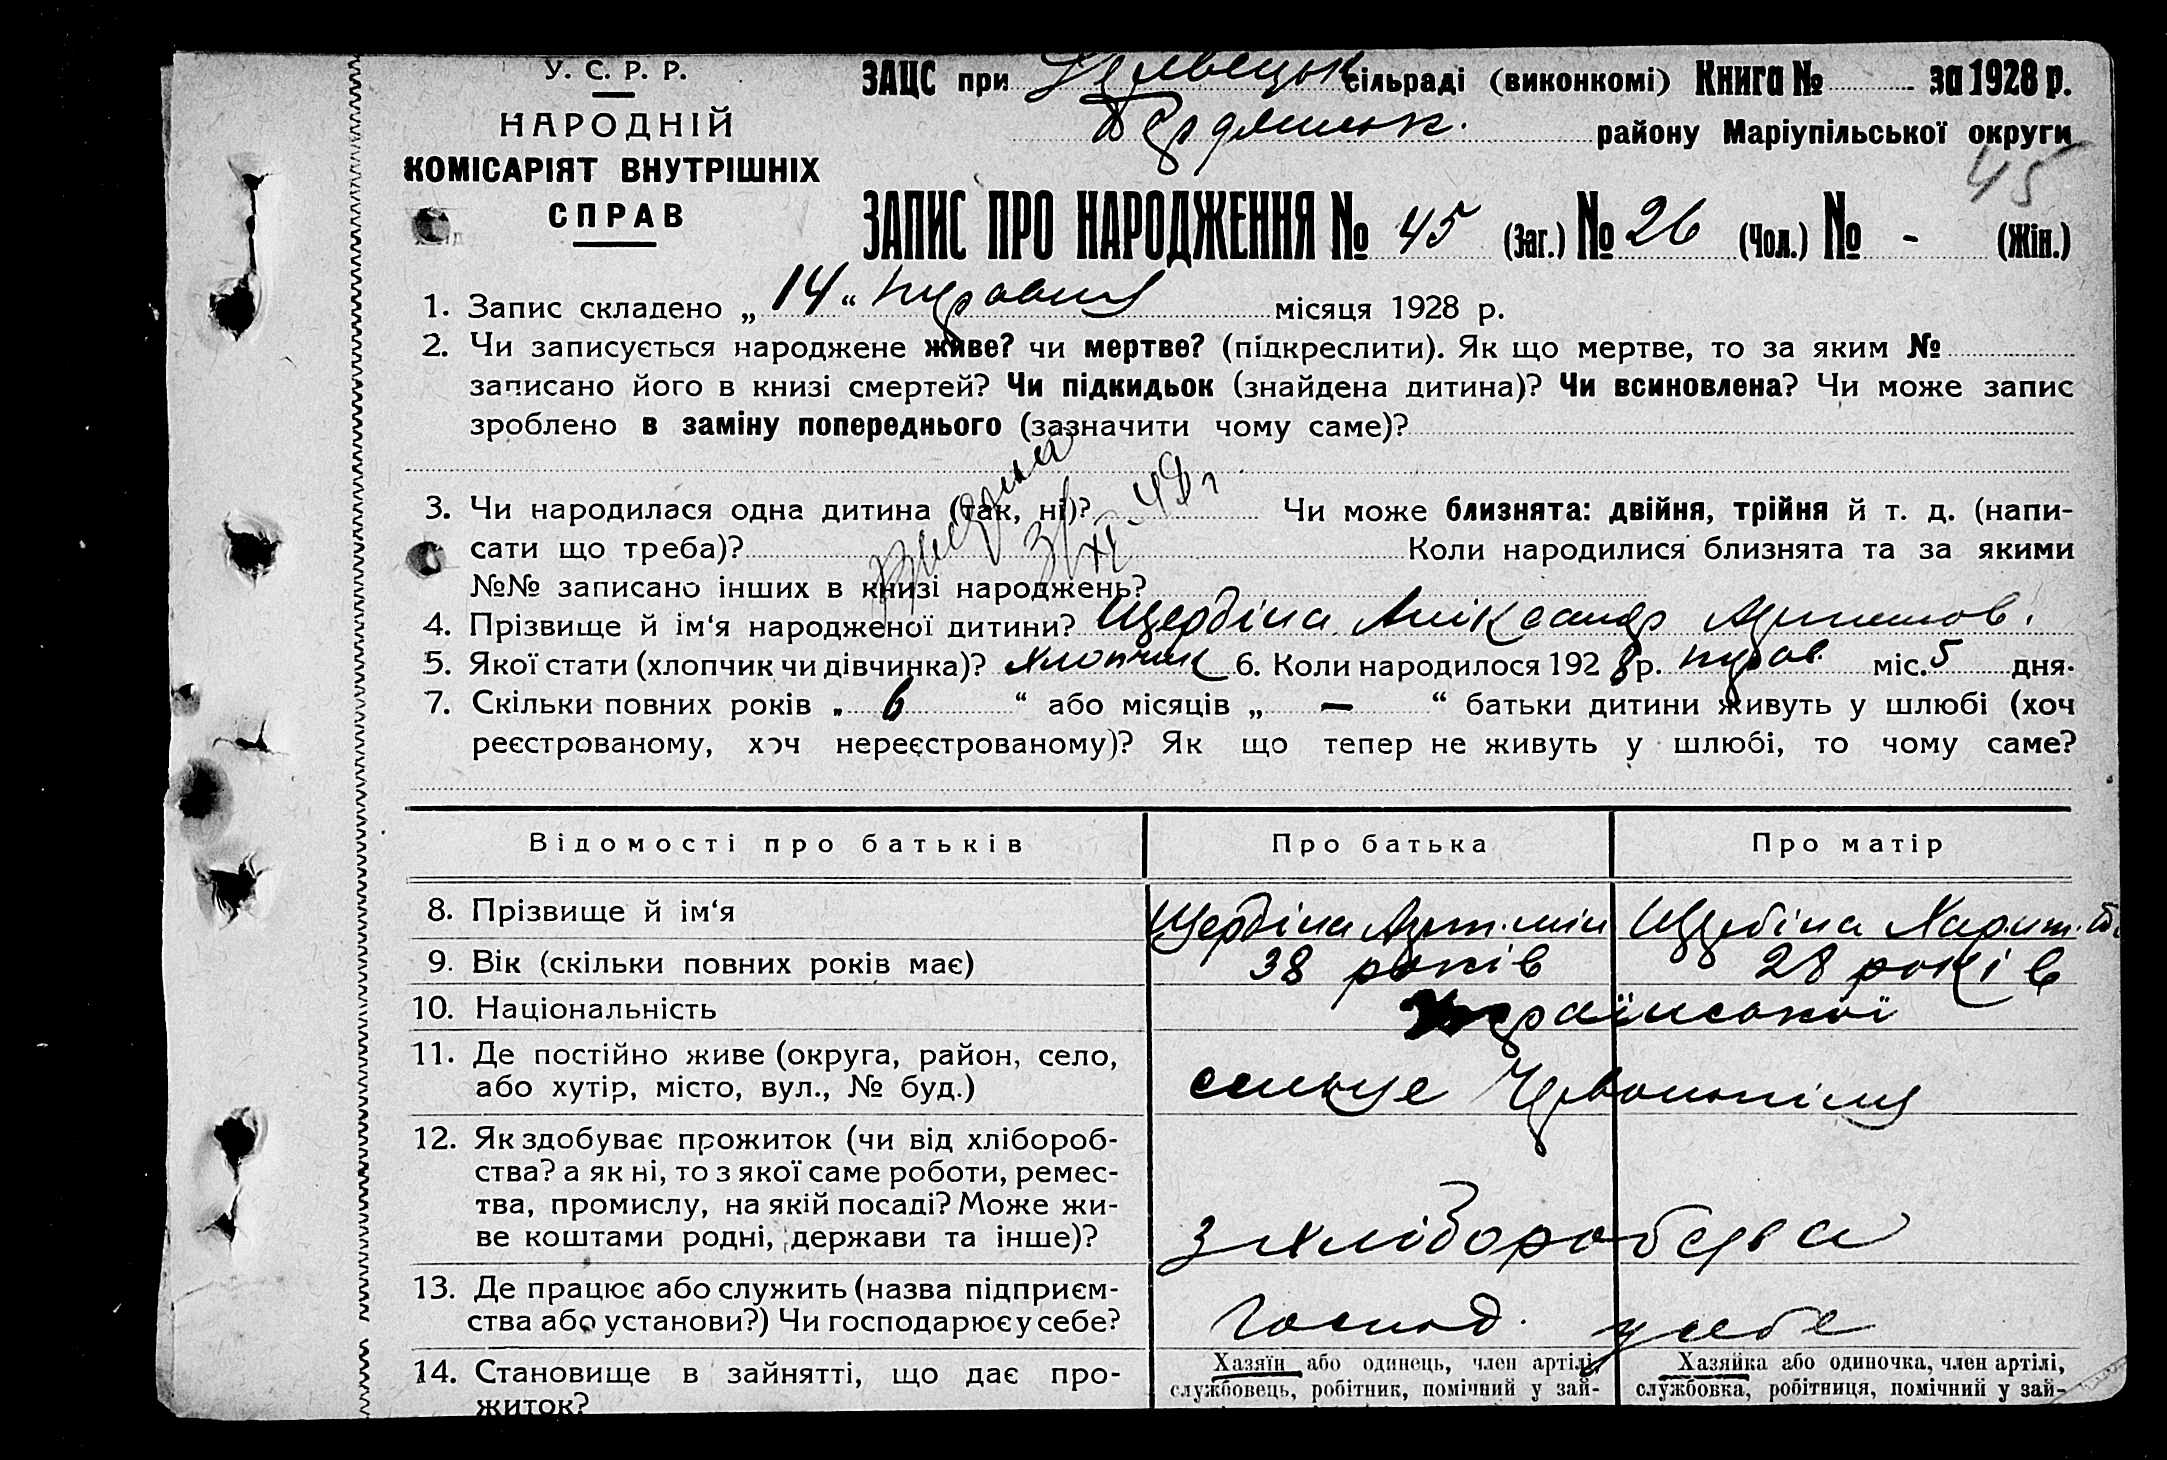 У. С. Р. Р.
НАРОДНІЙ
КОМІСАРІЯТ ВНУТРІШНІХ
СПРАВ
ЗАЦС при сільраді (виконкомі) Книга № за 1928 р.
Бердянськ. району Маріупільської округи
45
ЗАПИС ПРО НАРОДЖЕННЯ № 45 (Заг.) № 26 (Чол.) № - (Жін.)
1. Запис складено „ 14 “ травня місяця 1928 р.
2. Чи записується народжене живе? чи мертве? (підкреслити). Як що мертве, то за яким №
записано його в книзі смертей? Чи підкидьок (знайдена дитина)? Чи всиновлена? Чи може запис
зроблено в заміну попереднього (зазначити чому саме)?
3. Чи народилася одна дитина (так, ні)? Чи може близнята: двійня, трійня й т. д. (напи-
сати що треба)? Коли народилися близнята та за якими
№№ записано інших в книзі народжень?
4. Прізвище й ім‘я народженої дитини? Щербіна Александр Артемов.
5. Якої стати (хлопчик чи дівчинка)? Хлопчик 6. Коли народилося 1928 р. трав. міс. 5 дня.
7. Скільки повних років „ 6 “ або місяців „ — “ батьки дитини живуть у шлюбі (хоч
реєстрованому, хоч нереєстрованому)? Як що тепер не живуть у шлюбі, то чому саме?
Відомості про батьків Про батька Про матір
8. Прізвище й ім‘я Щербіна Щербіна Харит.
9. Вік (скільки повних років має) 38 років 28 років
10. Національність Української
11. Де постійно живе (округа, район, село,
або хутір, місто, вул., № буд.) сельце
12. Як здобуває прожиток (чи від хлібороб-
ства? а як ні, то з якої саме роботи, ремес-
тва, промислу, на якій посаді? Може жи-
ве коштами родні, держави та інше)? З хліборобства
13. Де працює або служить (назва підприєм-
ства або установи?) Чи господарює у себе? Господ. у себе
14. Становище в зайнятті, що дає про-
житок?
Хазяїн або одинець, член артілі,
службовець, робітник, помічний у зай-
Хазяйка або одиночка, член артілі,
службовка, робітниця, помічний у зай-